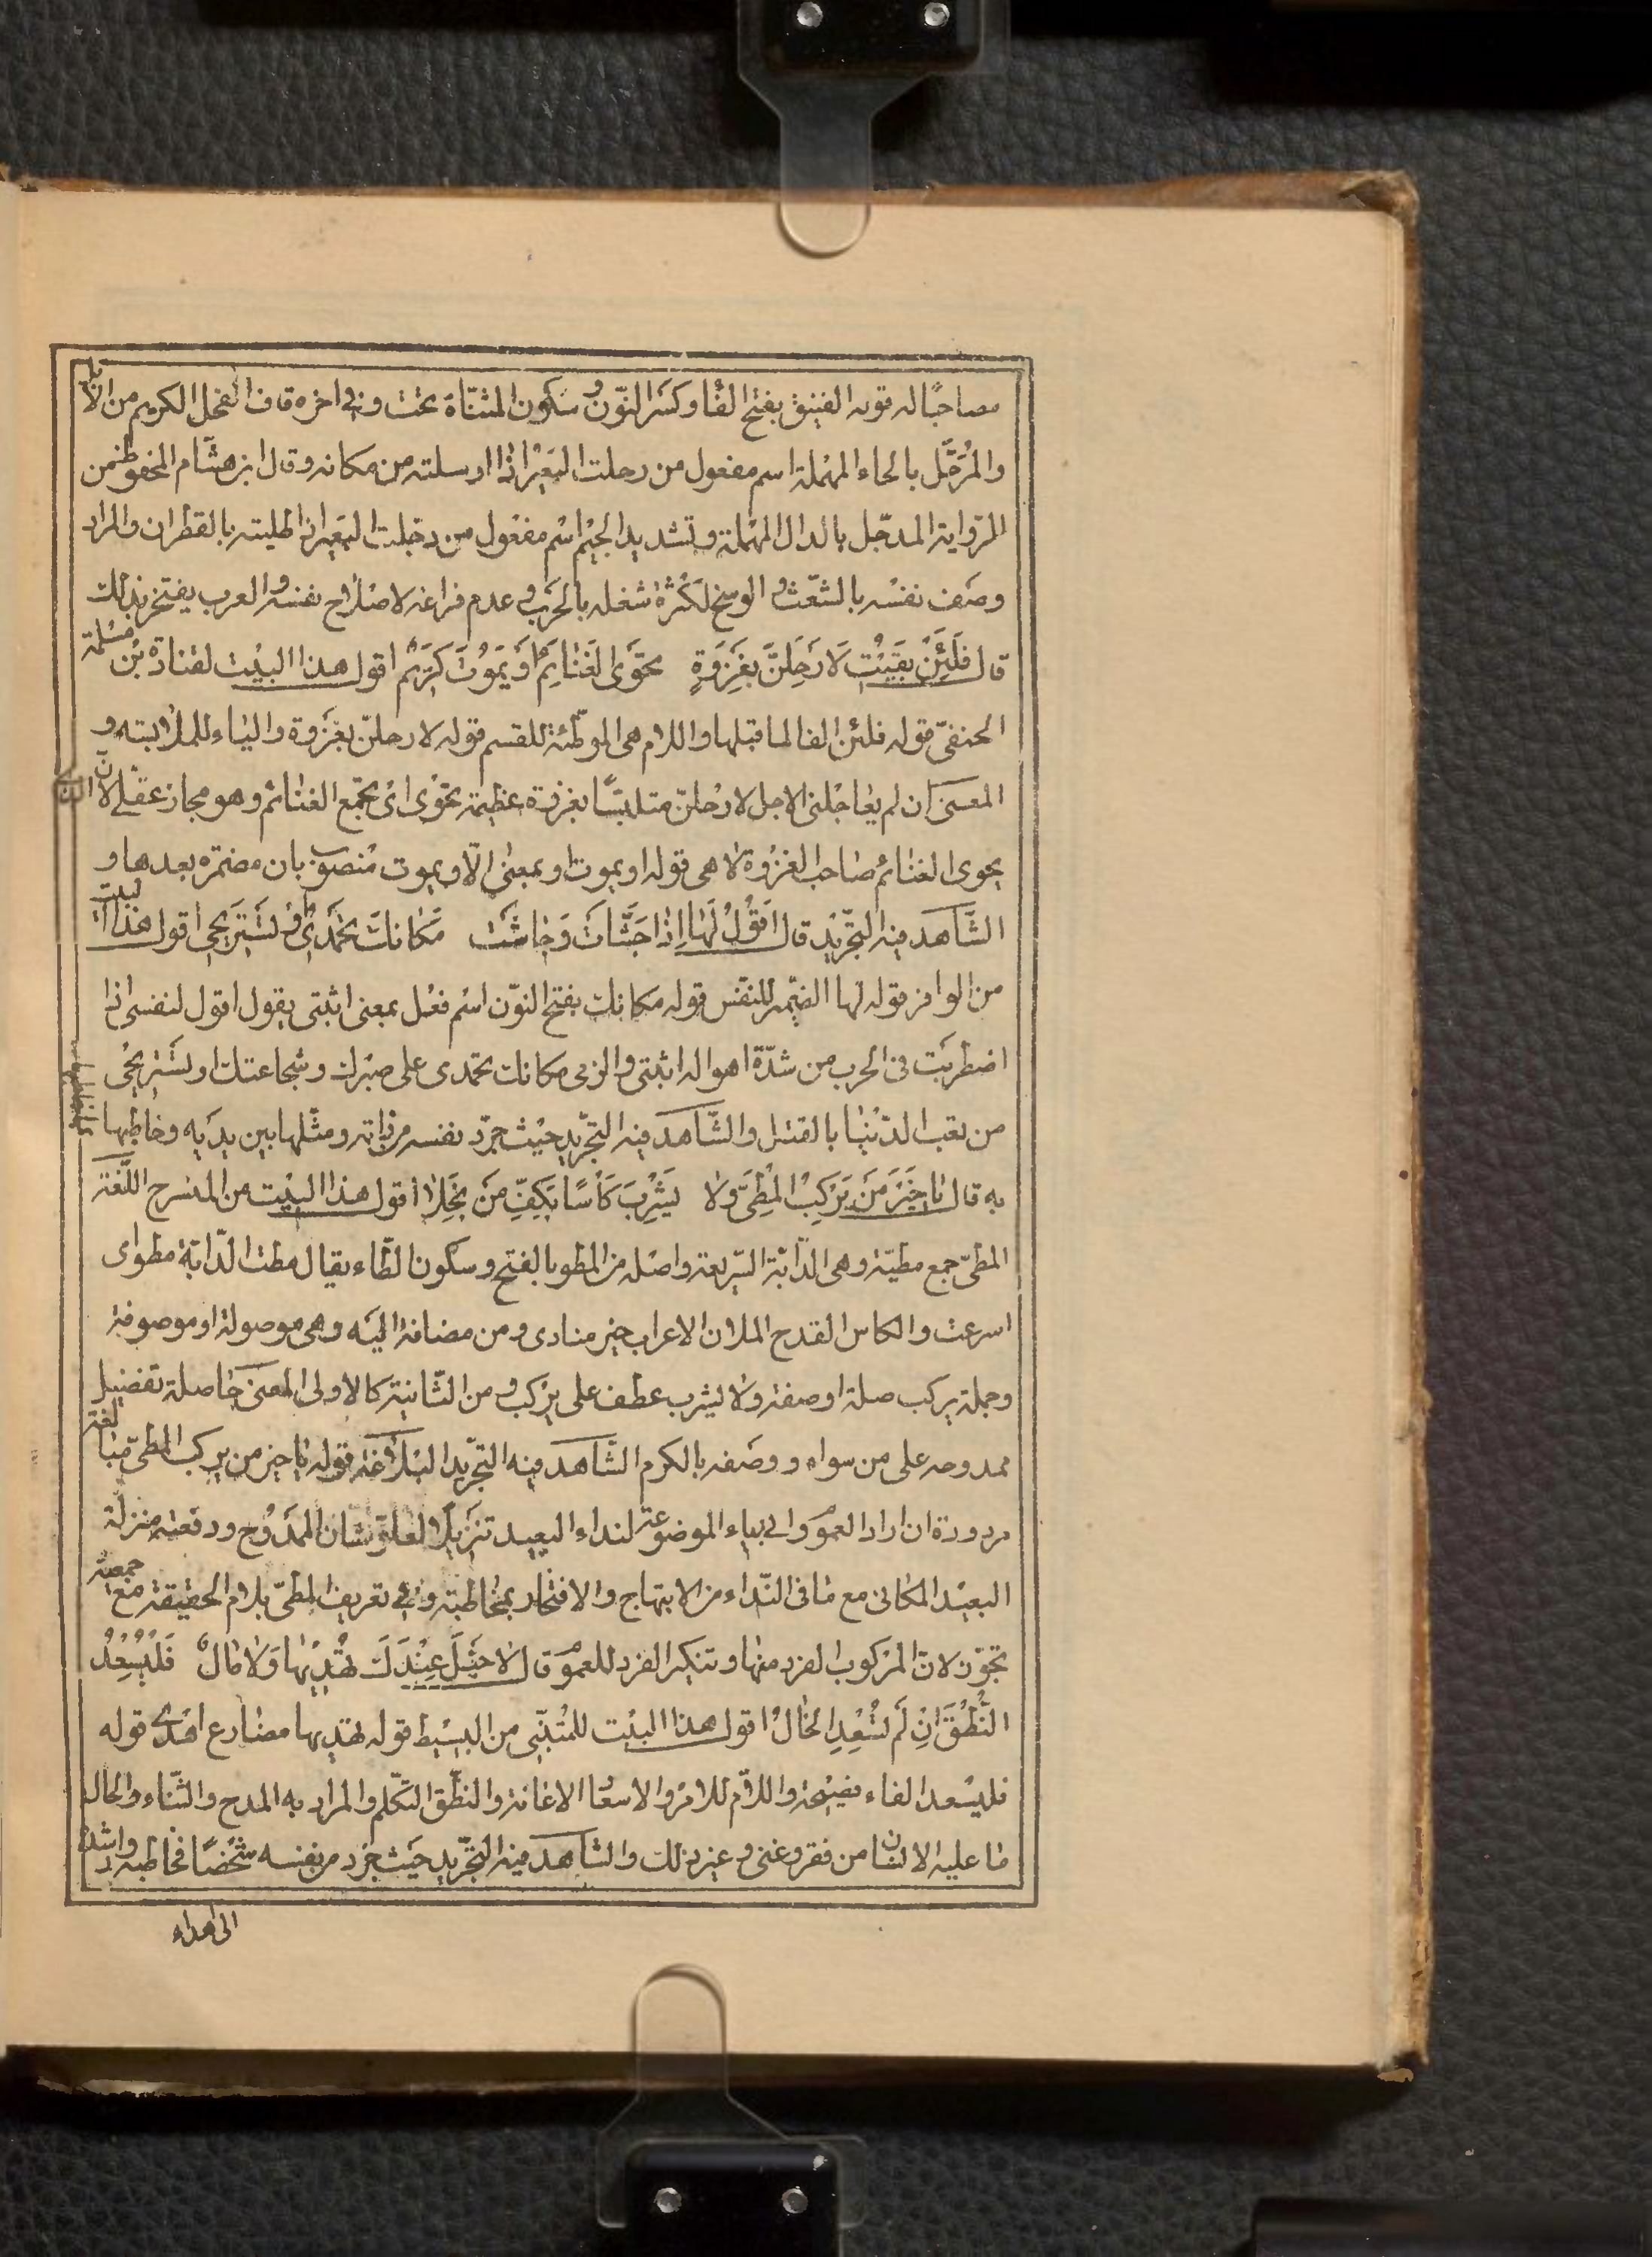 مصاحبًا له قوله الفنيق بفتح الفاء وكسر النّون وسكون المثنّاة تحت وفي اخره قاف الفحل الكريم من الابل
والمُرَحَّل بالحاء المهملة اسم مفعول من رحلت البَعير اذا ارسلته من مكانه وقال ابن هشام المحفوظ من
الرّواية المدجّل بالدال المهملة وتشديد الجيم اسْم مفعُول من دجّلت البَعير اذا طليته بالقطران والمراد
وصَف نفسْه بالشعّث و الوسخ لكَثرْة شغله بالحَرب و عدم فراغه لاصْلاح نفسْه والعرب يفتخر بذلك
قال فَلَئِنْ بَقَيْتُ لَارَحِلَنَّ بِغَزوَةٍ تحَوَى الغَنَايِمَ اَو يَمَوُتَ كَرِيمٌ اقول هذا البيْت لقتادة بْن مسْلمة
الحنفىّ قوله فلئن الفا لما قبلها واللام هى الموطّئة للقسم قوله لارحلنّ بغَزوة والبَاء للملابسته و
المعنى ان لم يعاجْلنى الاجل لارْحلنّ متلبسًّا بغزوة عظيمة تحوْى اىْ تجْمع الغنائم وهو مجاز عقلى لانّ الذى
يحوى الغنائم صَاحب الغزوْة لا هى قوله او يموت او بمعنى الّا ويموت مْنصوب بان مضمَره بعدها و
الشّاهد فيه التجّريْد قال اَقوُلُ لَهَا اِذَا جَشَّأتَ وَجَاشَتْ مَكانَكَ تحْمَدَىْ اَوْ تَسْتَرَيحَى اقول هذا البيت
من الوافر قوله لها الضّمير للنفّس قوله مكانك بفتح النوّن اسْم فعْل بمعنى اثبتى يقول اقول لنفسى اذا
اضطربَت فى الحرب من شدّة اهواله اثبتى والزمى مكانك تحمّدى على صبْرك وشجاعتك او تسْتَريحْى
من تعب الدّنيْا بالقتل والشّاهد فيه التجّريد حيْث جرّد نفسه من ذاته ومثّلها بين يديَه وخاطبها
به قال يَا خَيْرَ مَن يَرَكَبْ المَطِىَّ ولا يَشْرِبَ كَأسًا بكَفِّ مَن بَخِلا اقول هذا البيْت من المنسرح اللغّة
المطىّ جمع مطيّة وهى الدّابّة السّريعة واصْله من المطو بالفتح وسكون الطّاء يقال مطت الدّابّة مطو اى
اسرعت والكاس القدح الملان الاعراب خير منادى ومن مضافة اليَه وهى موصولة او موصوفة
وجملة يركب صلة او صفة ولا يشرب عطف على يرْكب و من الثّانية كالاولى المعنى حاصلة تفضيل
ممدوحه على من سواه و وصَفه بالكرم الشّاهد فيه التجّريد البْلاغة قوله يا خير من يركب المطىّ مبالغة
مردودة ان اراد العموم وان بياء الموضوعة لنداء البعيد تنزيلًا لعلوّ شان الممَدوْح ورفعته منزلة
البعيْد المكانى مع ما فى النّداء من الابتهاج والافتخار بمخاطبته وفى تعريف المطىّ بلام الحقيقة مع جمعيته
تجوّز لانّ المرْكوب الفرد منها وتنكير الفرد للعموم قال لَا خَيْلَ عِنْدَكَ تهُدْيهَا وَلَا مَالٌ فَلْيُسْعِدُ
النُّطْقَ اِنْ لَم تُسْعِدِ الحَالْ اقول هذا البيْت للمُتنبّى من البسيْط قوله تهْديها مضَارع اهْدى قوله
فليسْعد الفاء فصْيحة واللّام للامْر والاسعْا الاغانة والنطّق التكلّم والمراد به المدح والثّناء والحال
ما عليه الانسان من فقر وغنى و غير ذلك والشاهد فيه التجّريد حيَث جرّد من نفسه شخصًا فخاطبه وارشده
الى اهداء